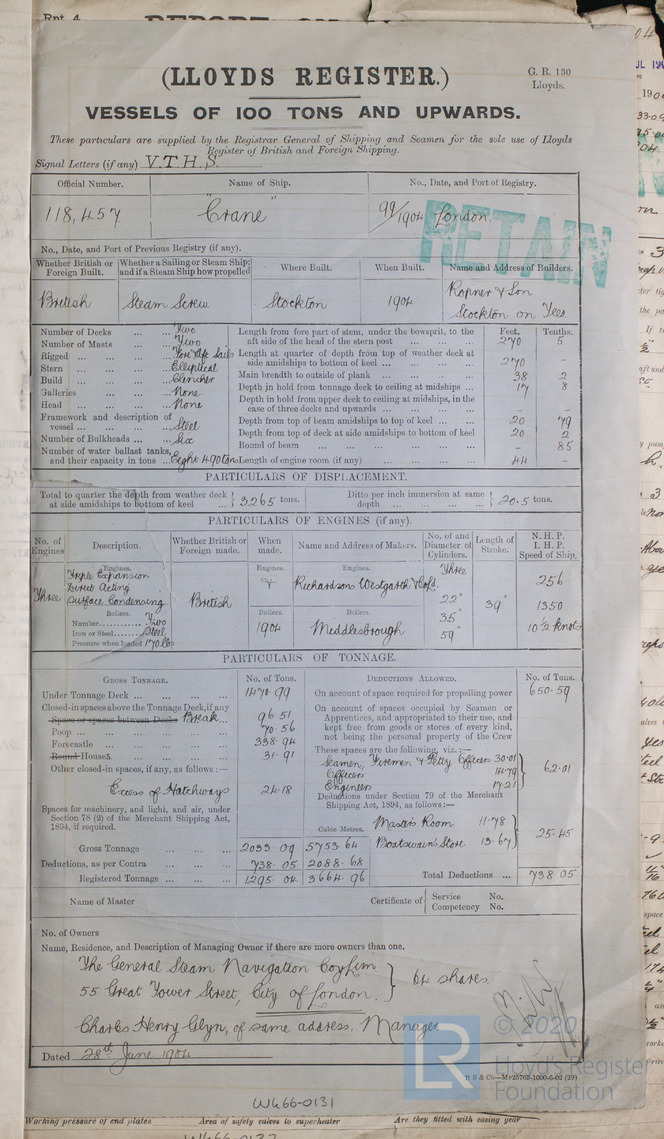 Rpt. 4.
(LLOYDS REGISTER.)
G. R. 130
Lloyds.
VESSELS OF 100 TONS AND UPWARDS.
These particulars are supplied by the Registrar General of Shipping and Seamen for the sole use of Lloyds
Register of British and Foreign Shipping.
Signal Letters (if any) V.T.H.S.
Official Number. Name of Ship. No., Date, and Port of Registry.
118,457 "Crane" 99/1904 London
RETAIN
No., Date, and Port of Previous Registry (if any).
Whether British or Foreign Built. Whether a Sailing or Steam Ship; and if a Steam Ship how propelled Where Built. When Built. Name and Address of Builders.
British Steam Screw Stockton 1904 Ropner & Son
Stockton on Tees
Feet. Tenths.
Number of Decks ... ... Two Length from fore part of stem, under the bowsprit, to the
aft side of the head of the stern post ... ... 270 5
Number of Masts ... ... Two
Rigged ... ... Fore & Aft Sails Length at quarter of depth from top of weather deck at
side amidships to bottom of keel ... ... 270 -
Stern ... ... Elliptical
Main breadth to outside of plank ... ... 38 2
Build ... ... Clencher
Galleries ... ... None Depth in hold from tonnage deck to ceiling at midships ... 17 8
Head ... ... None Depth in hold from upper deck to ceiling at midships, in the
case of three decks and upwards ... ... - -
Framework and description of
vessel ... ... Steel Depth from top of beam amidships to top of keel ... 20 79
Number of Bulkheads ... Six Depth from top of deck at side amidships to bottom of keel 20 2
Number of water ballast tanks, Round of beam ... ... - 85
and their capacity in tons ... Eight 490 tons Length of engine room (if any) ... ... 44 -
PARTICULARS OF DISPLACEMENT.
Total to quarter the depth from weather deck
at side amidships to bottom of keel ... } 3265 tons. Ditto per inch immersion at same
depth ... ... } 20.5 tons.
PARTICULARS OF ENGINES (if any).
No. of Engines Description. Whether British or Foreign made. When made. Name and Address of Makers. No. of and Diameter of Cylinders. Length of Stroke. N. H. P. I. H. P. Speed of Ship.
Engines. Engines. Engines.
Three Triple Expansion
Direct Acting
Surface Condensing British Richardsons Westgarth & Co Ld. Three
22"
35"
59" 39" 256
1350
10½ knots
Boilers. Boilers. Boilers.
Number ... Two
Iron or Steel ... Steel 1904 Middlesbrough
Pressure when loaded 170 lbs
PARTICULARS OF TONNAGE.
GROSS TONNAGE. No. of Tons. DEDUCTIONS ALLOWED. No. of Tons.
Under Tonnage Deck ... ... 1470 99 On account of space required for propelling power 650.59
Closed-in spaces above the Tonnage Deck, if any
Space or spaces between Decks Break ... 96 51
Poop ... ... 70 56
Forecastle ... ... 338.94
Round Houses ... 31.91
On account of spaces occupied by Seamen or
Apprentices, and appropriated to their use, and
kept free from goods or stores of every kind,
not being the personal property of the Crew
These spaces are the following, viz.:—
Seamen, Firemen & Petty Officers 30.01
Officers 14.79
Engineers 17.21 } 62.01
Other closed-in spaces, if any, as follows:—
Excess of Hatchways 24.18
Deductions under Section 79 of the Merchant
Shipping Act, 1894, as follows:—
Spaces for machinery, and light, and air, under
Section 78 (2) of the Merchant Shipping Act,
1894, if required.
Cubic Metres.
Master's Room 11.78
Boatswain's Store 13.67 } 25.45
Gross Tonnage ... ... 2033.09 5753 64
Deductions, as per Contra ... 738.05 2088.68
Registered Tonnage ... ... 1295.04 3664.96 Total Deductions ... 738.05
Name of Master Certificate of { Service No.
Competency No.
No. of Owners
Name, Residence, and Description of Managing Owner if there are more owners than one.
The General Steam Navigation Coy Lim
55 Great Tower Street, City of London. } 64 shares
Charles Henry Glyn, of same address. Manager
Dated 28th June 1904
© 2020
LR
Lloyd's Register
Foundation
W466-0131
Working pressure of end plates Area of safety valves to superheater Are they fitted with easing gear